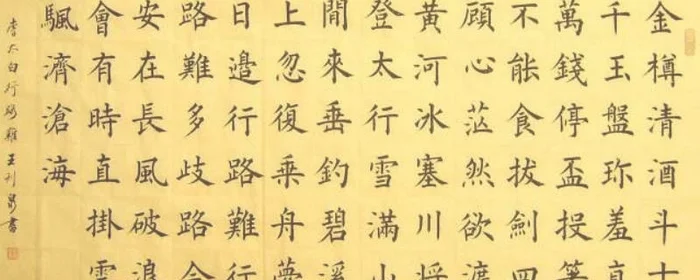 金樽清酒斗十
千玉盤珎羞直
萬錢停盃投箸
不能食拔劍四
顧心茫然欲渡
黃河冰塞川將
登太行雪滿山
閒來垂釣碧溪
上忽復乘舟夢
日邊行路難行
路難多歧路今
安在長風破浪
會有時直掛雲
颿濟滄海
李太白行路難 王刊書